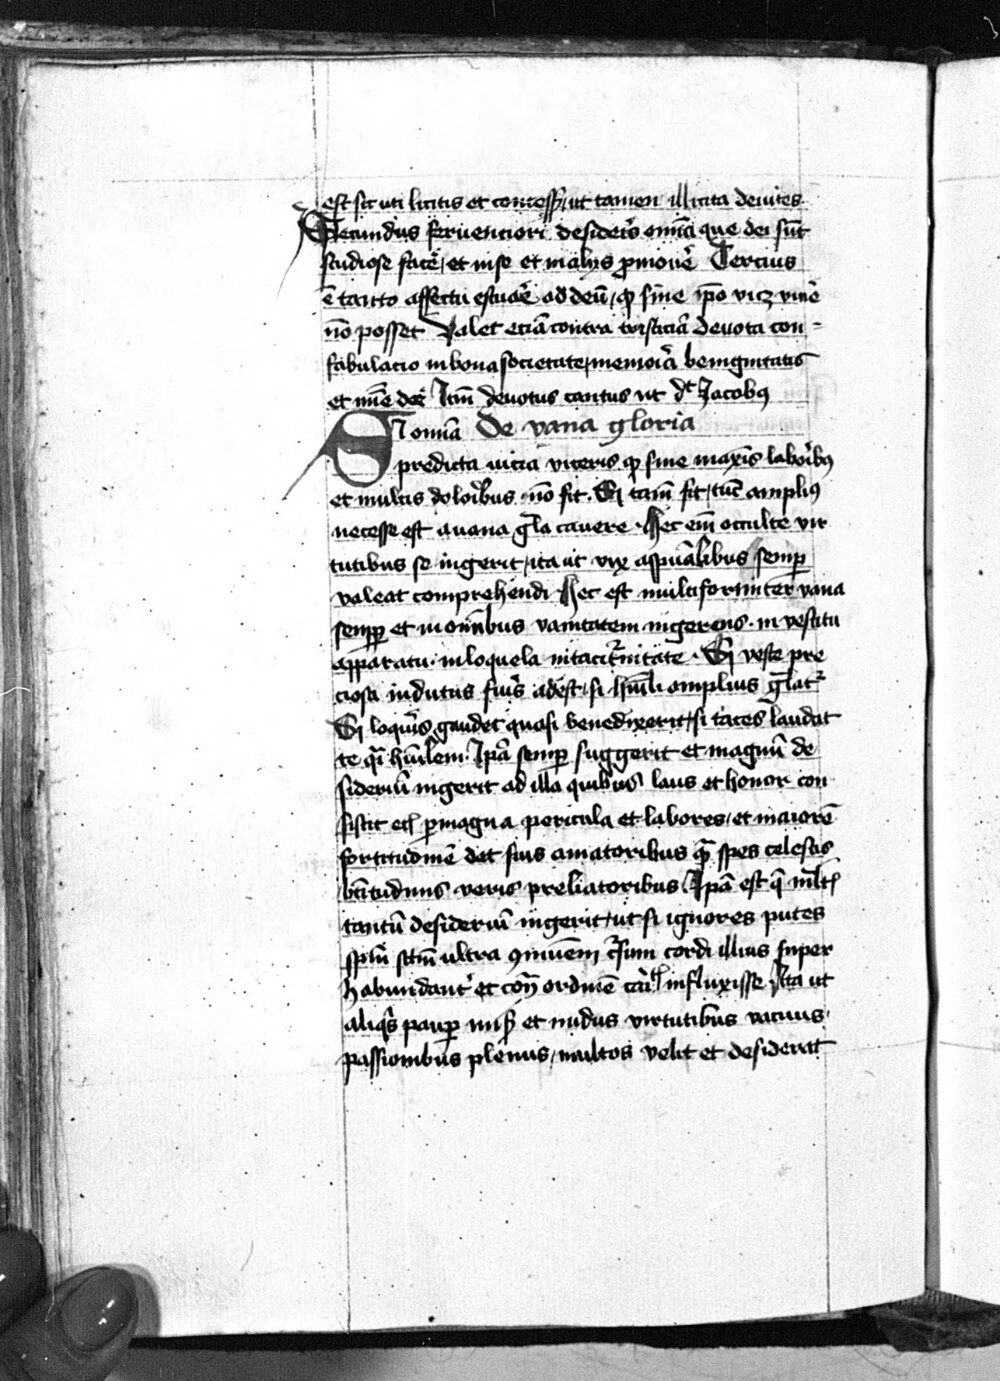 est sic uti licitis et concessis ut tamen illicita deuites
Secundus feruenciori desiderio om̄ia que dei sūt
studiose facē et in se et in aliis ꝓmouē Tercius
ē tanto affectu estuaē ad deū ꝙ sine ip̄o vix viuē
nō posset Valet eciā contra tristiciā deuota con=
fabulacio in bona societate memoīa benignitatis
et mīe dei Itm̄ deuotus cantus ut dt Jacobus
Si om̄ia De vana gloria
predicta uicia viceris ꝙ sine maxīs laboribus
et multis doloribus nō fit. Si tam̄ fit tūc amplius
necesse est a uana gl̄a cauere. Hec em̄ occulte vir
tutibus se ingerit ita ut vix a spūalibus semꝑ
valeat comprehendi Hec est multiformiter vana
semꝑ et in om̄ibus vanitatem ingerens. in vestitu
apparatu. in loquela in taciturnitate. Si veste pre
ciosa indutus fuīs adest si hūili amplius gl̄at2
Si loquīs gaudet quasi benedixerit si taces laudat
te q̄i hūilem. Ip̄a semꝑ suggerit et magnū de
siderīu ingerit ad illa quibus laus et honor con
sistit ecī ꝑ magna pericula et labores et maiorē
fortitudinē dat suis amatoribus quā spes celestis
btītudinis veris preliatoribus Ip̄a est q̄ mltis
tantū desiderīu ingerit ut si ignores putes
spm̄ sctm̄ ultra ꝯmuēm cursum cordi illius super
habundantˀ et cōtra ordinē caritatis influxisse Ita ut
aliqīs pauꝑ misꝰ et nudus virtutibus vacuus
passionibus plenus multos velit et desiderat